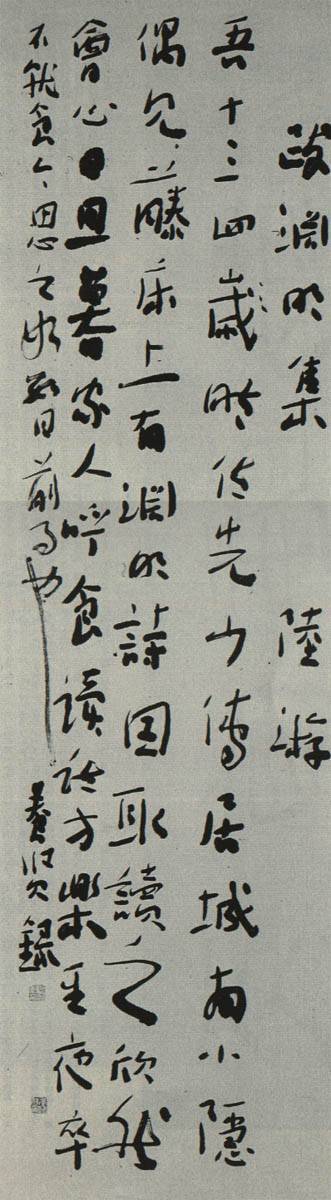 跋淵明集 陸游
吾十三四歲時侍先少傅居城南小隱
偶見藤床上有淵明詩因取讀之欣然
會心日且暮家人呼食讀詩方樂至夜卒
不就食今思之如數日前事也 錄